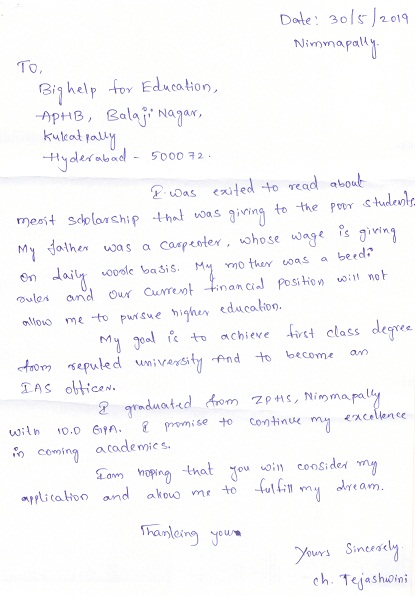 Date: 30/5/2019
Nimmapally.
To,
Bighelp for Education,
APHB, Balaji Nagar,
Kukatpally
Hyderabad - 500072.
I was exited to read about
merit scholarship that was giving to the poor students.
My father was a carpenter, whose wage is giving
on daily work basis. My mother was a beedi
ruler and our current financial position will not
allow me to pursue higher education.
My goal is to achieve first class degree
from reputed university And to become an
IAS officer.
I graduated from ZPHS, Nimmapally
with 10.0 GPA. I promise to continue my excellence
in coming academics.
I am hoping that you will consider my
application and allow me to fulfill my dream.
Thanking you
Yours Sincerely
ch. Tejashwini